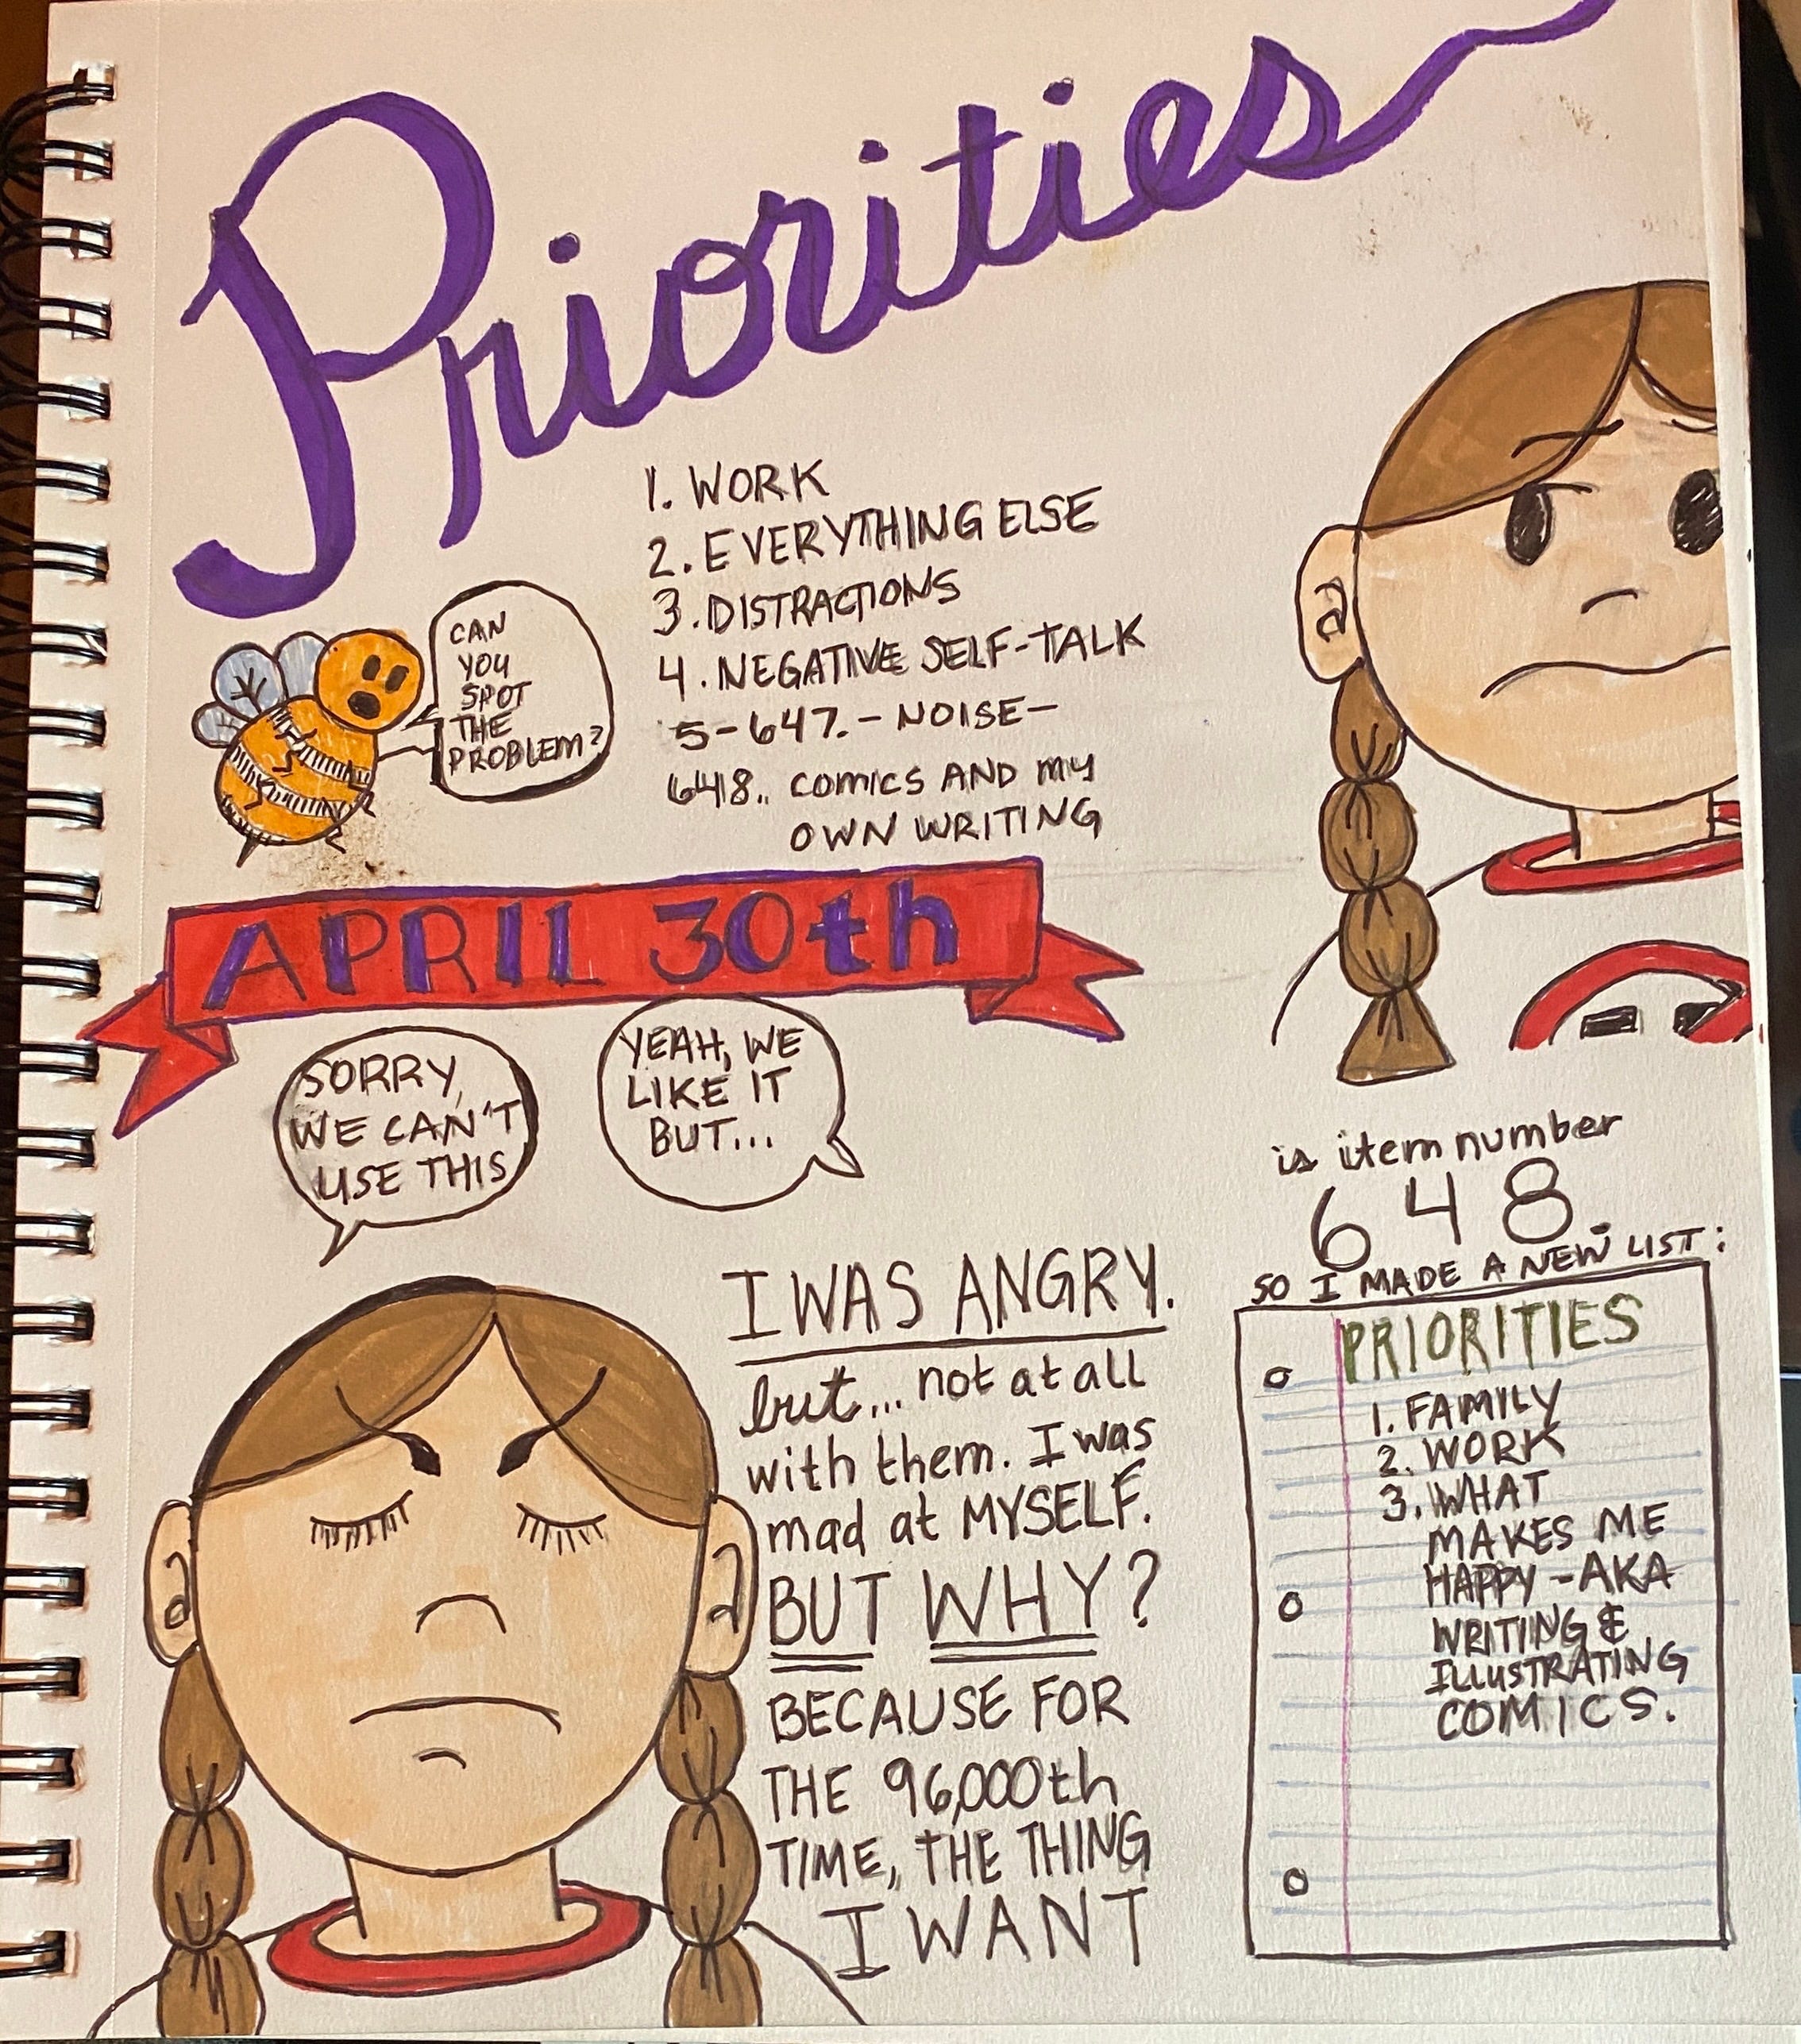 Priorities
1. WORK
2. EVERYTHING ELSE
3. DISTRACTIONS
4. NEGATIVE SELF-TALK
5-647. - NOISE -
648.. COMICS AND MY
OWN WRITING
CAN
YOU
SPOT
THE
PROBLEM?
APRIL 30th
SORRY,
WE CAN'T
USE THIS
YEAH, WE
LIKE IT
BUT...
I WAS ANGRY.
but... not at all
with them. I was
mad at MYSELF.
BUT WHY?
BECAUSE FOR
THE 96,000th
TIME, THE THING
I WANT
is item number
648.
SO I MADE A NEW LIST:
PRIORITIES
1. FAMILY
2. WORK
3. WHAT
MAKES ME
HAPPY - AKA
WRITING &
ILLUSTRATING
COMICS.